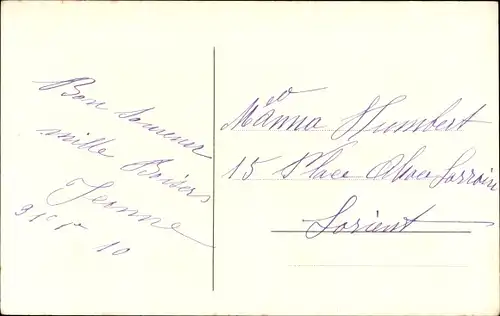 Bon Souvenir
mille Baisers
Jeanne
10
Humbert
15 Place Alsace Lorraine
Lorient